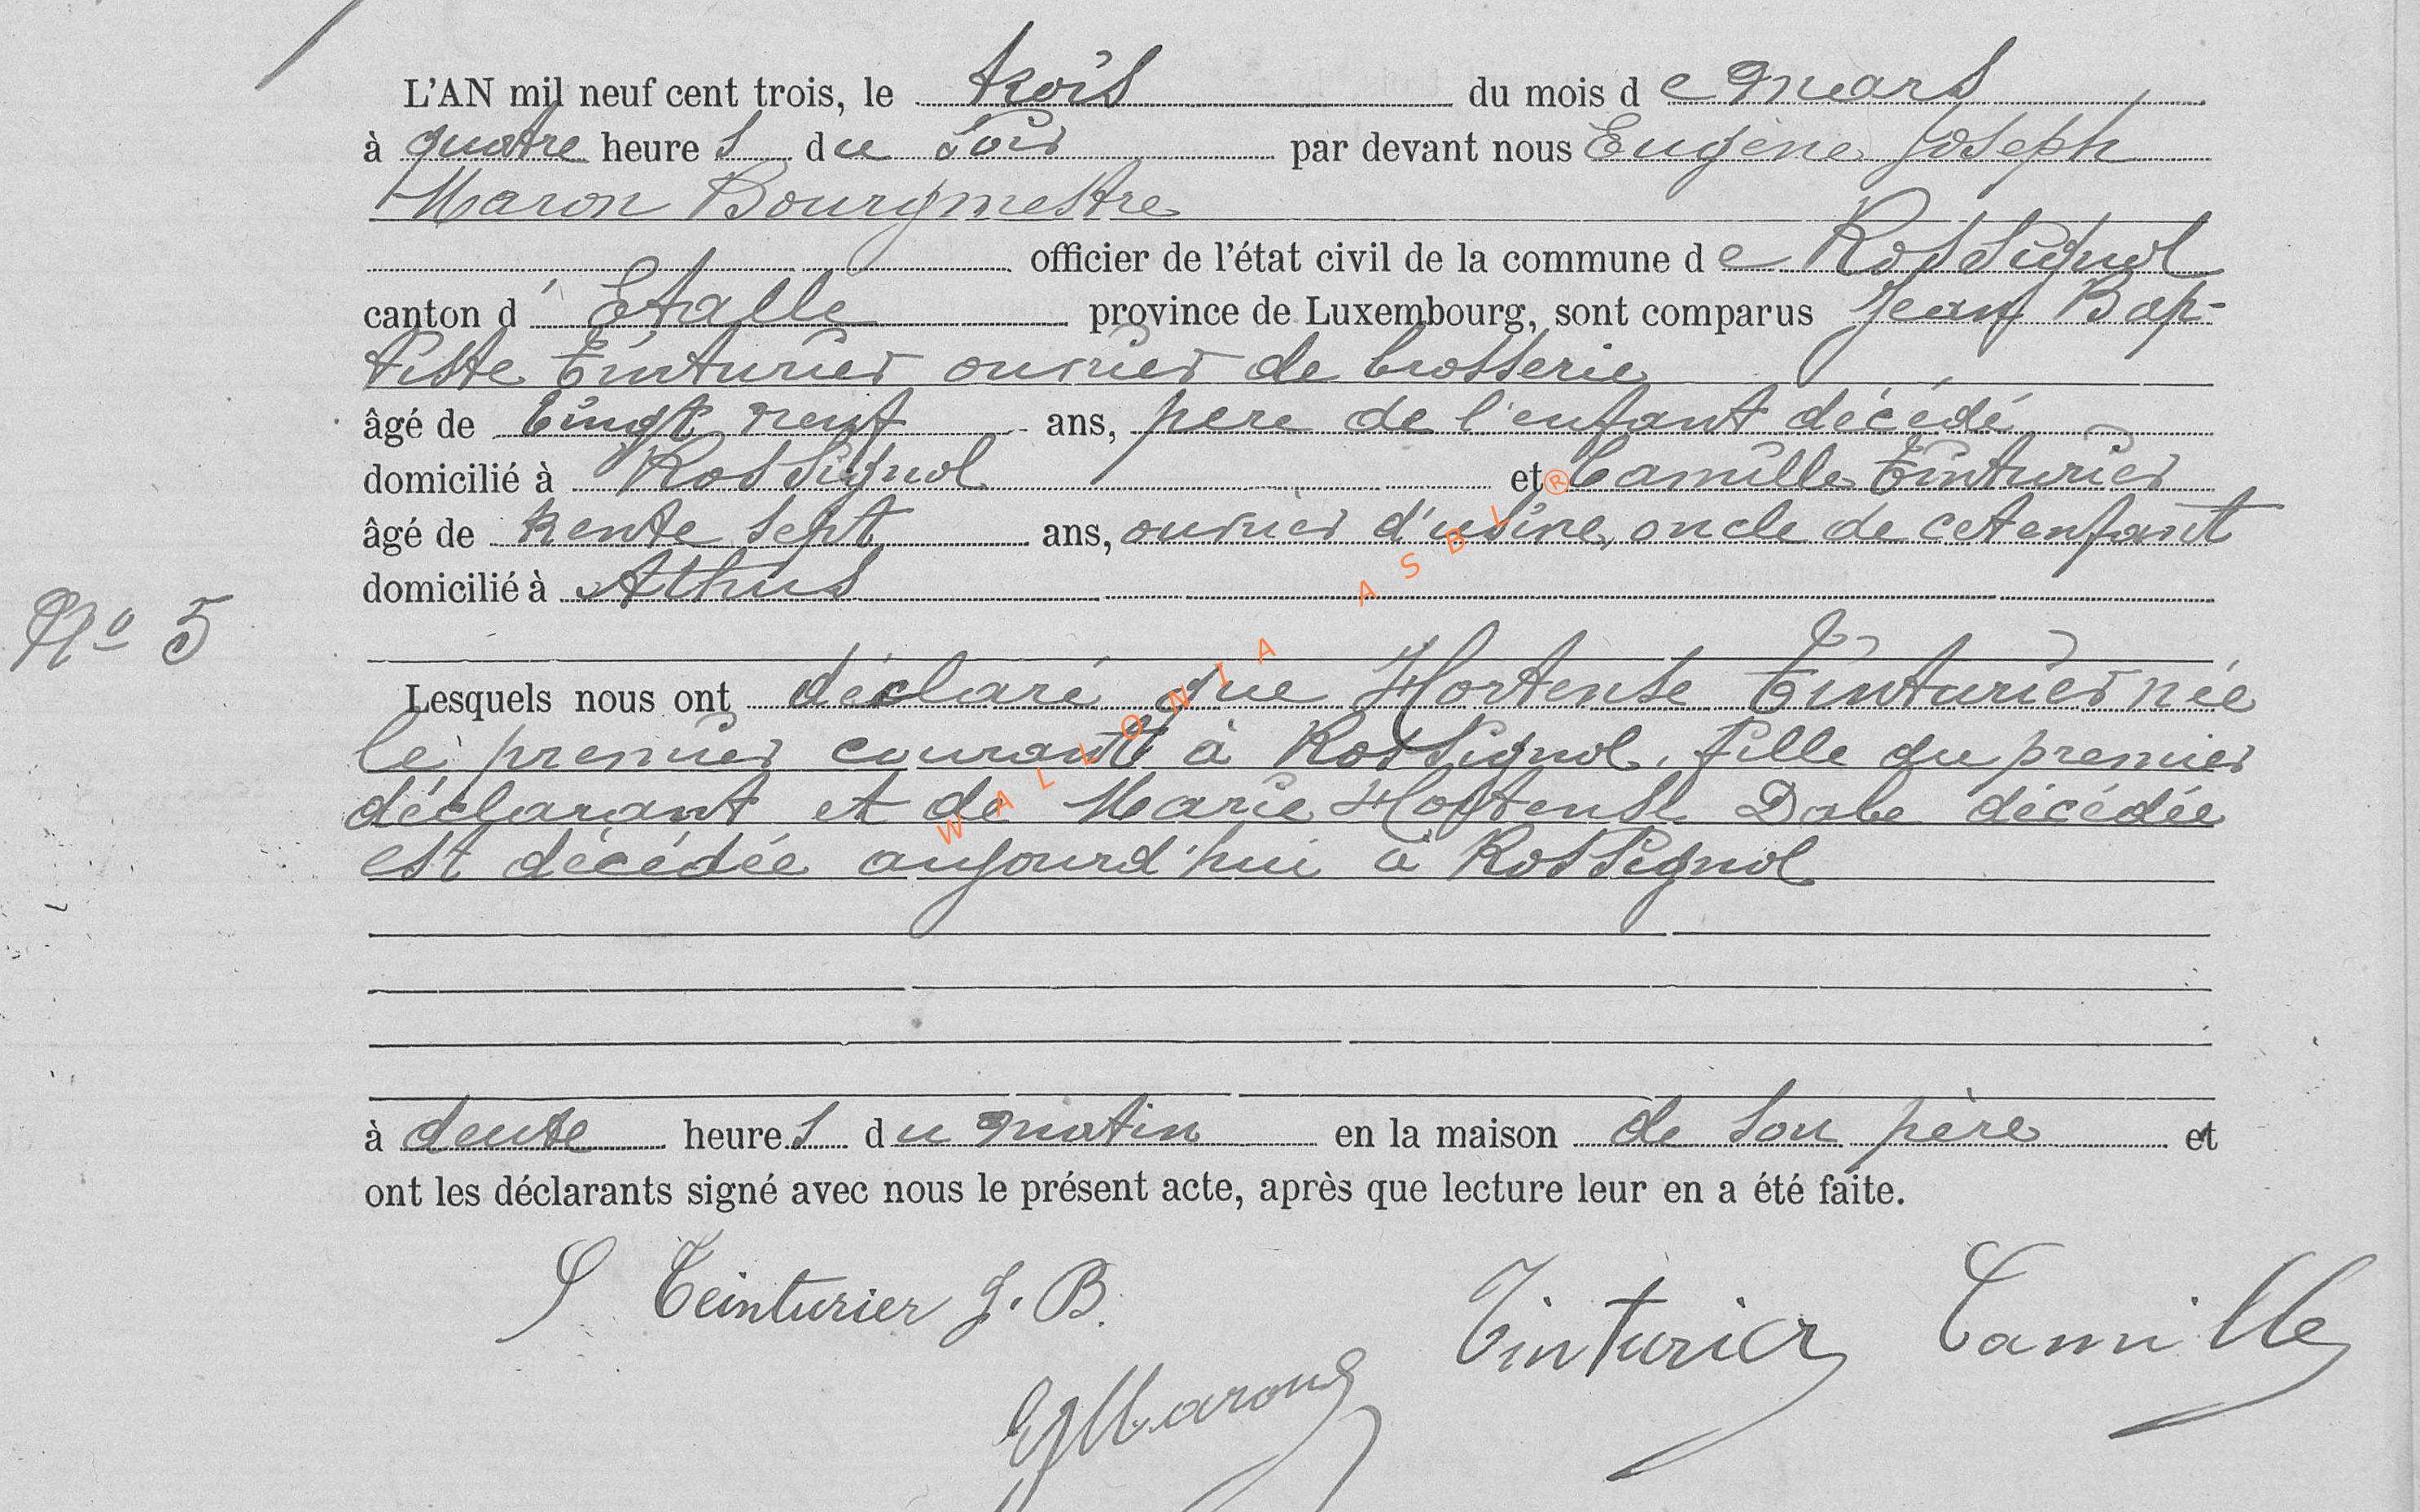 L'AN mil neuf cent trois, le trois du mois de mars
à quatre heures du soir par devant nous Eugène Joseph
Maron Bourgmestre
officier de l'état civil de la commune de Rossignol
canton d'Etalle province de Luxembourg, sont comparus Jean Bap-
tiste Tinturier ouvrier de brosserie
âgé de vingt neuf ans, père de l'enfant décédé
domicilié à Rossignol et Camille Tinturier
âgé de trente sept ans, ouvrier d'usine, oncle de cet enfant
domicilié à Athus
N° 5
Lesquels nous ont déclaré que Hortense Tinturier née
le premier courant à Rossignol, fille du premier
déclarant et de Marie Hortense Dabe décédée
est décédée aujourd'hui à Rossignol
à deux heures du matin en la maison de son père et
ont les déclarants signé avec nous le présent acte, après que lecture leur en a été faite.
Teinturier J. B.
Tinturier Camille
EJMaron
WALLONIA ASBL ®